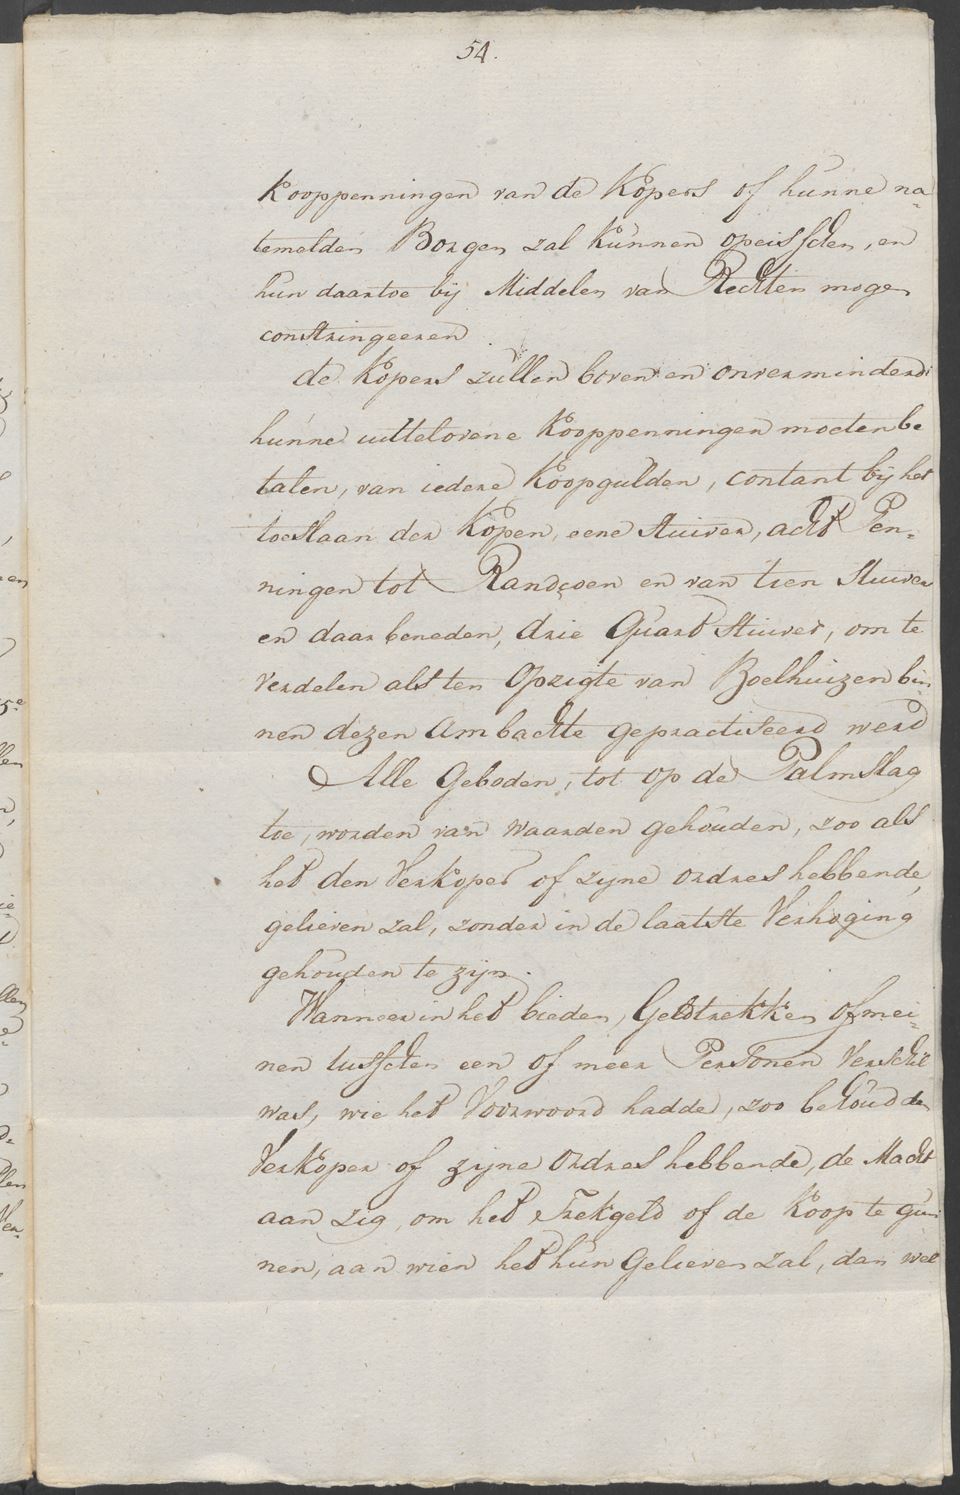 54.
Kooppenningen van de Kopers of hunne na-
temelden Borgen zal kunnen opeisschen, en
hun daartoe bij Middelen van Rechten mogen
constringeeren
de Kopers zullen boven en onvermindert
hunne uittelovene Kooppenningen moeten be
talen, van iedere Koopgulden, contant bij het
toeslaan der Kopen, eene Stuiver, acht Pen-
ningen tot Randçoen en van tien Stuiver
en daar beneden, drie Quart Stuiver, om te
verdelen als ten Opzigte van Boelhuizen bin-
nen dezen Ambachte gepractiseerd werd
Alle Geboden, tot op de Palmslag
toe, worden van Waarden gehouden, zoo als
het den Verkoper of zijne ordres hebbende,
gelieven zal, zonder in de laatste Verhoging
gehouden te zijn.
Wanneer in het bieden, Geldtrekken of mei-
nen tusschen een of meer Personen Verschil
was, wie het Voorwoord hadde, zoo behoud de
Verkoper of zijne Ordres hebbende, de Macht
aan zig, om het Trekgeld of de Koop te gun-
nen, aan wien het hun Gelieven zal, dan wel